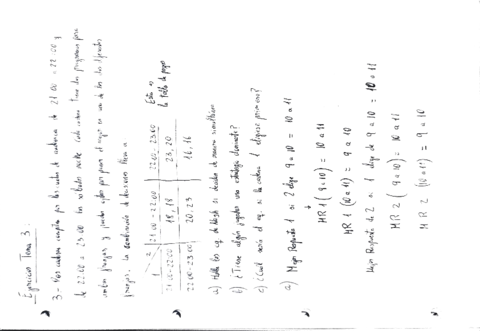 Ejercicios Tema 3
3- Dos cadenas compiten por las cuotas de audiencia de 21:00 a 22:00 y
de 22:00 a 23:00 los sábados noche. Cada cadena tiene dos programas para
ambas franjas y pueden optar por poner el mejor en una de las dos
franjas. La combinación de decisiones lleva a
1 2 21:00-22:00 22:00-23:00
21:00-22:00 18, 18 23, 20
22:00-23:00 20, 23 16, 16
Esta es la tabla de pagos
a) Halla los eq. de Nash si deciden de manera simultánea
b) ¿Tiene algún jugador una estrategia dominante?
c) ¿Cuál sería el eq. si la cadena 1 eligiese primero?
a) Mejor Respuesta 1 si 2 elige 9 a 10 = 10 a 11
MR 1 (9 a 10) = 10 a 11
MR 1 (10 a 11) = 9 a 10
Mejor Respuesta de 2 si 1 elige de 9 a 10 = 10 a 11
MR 2 (9 a 10) = 10 a 11
MR 2 (10 a 11) = 9 a 10